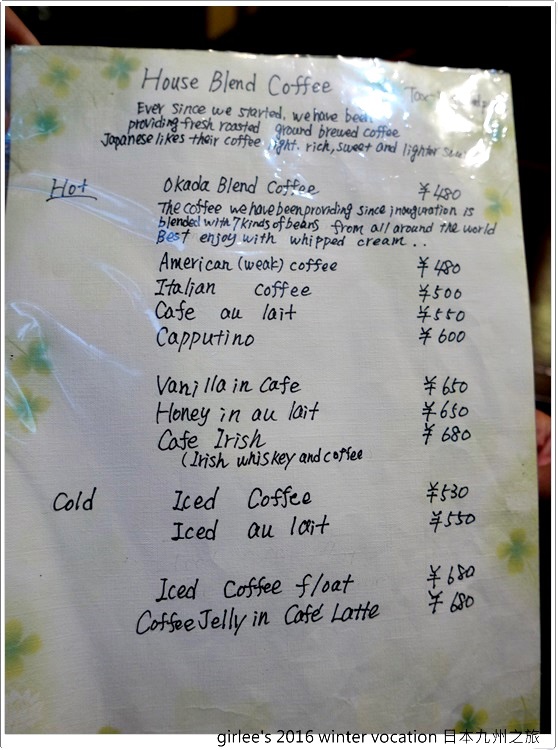 House Blend Coffee
Ever since we started, we have been
providing fresh roasted ground brewed coffee
Japanese likes their coffee light, rich, sweet and lighter
Hot
Okada Blend Coffee ¥480
The coffee we have been providing since inauguration is
blended with 7 kinds of beans from all around the world
Best enjoy with whipped cream..
American (weak) coffee ¥480
Italian coffee ¥500
Cafe au lait ¥550
Capputino ¥600
Vanilla in Cafe ¥650
Honey in au lait ¥650
Cafe Irish ¥680
(Irish whiskey and coffee
Cold Iced Coffee ¥530
Iced au lait ¥550
Iced Coffee float ¥680
Coffee Jelly in Café Latte ¥680
girlee's 2016 winter vocation 日本九州之旅